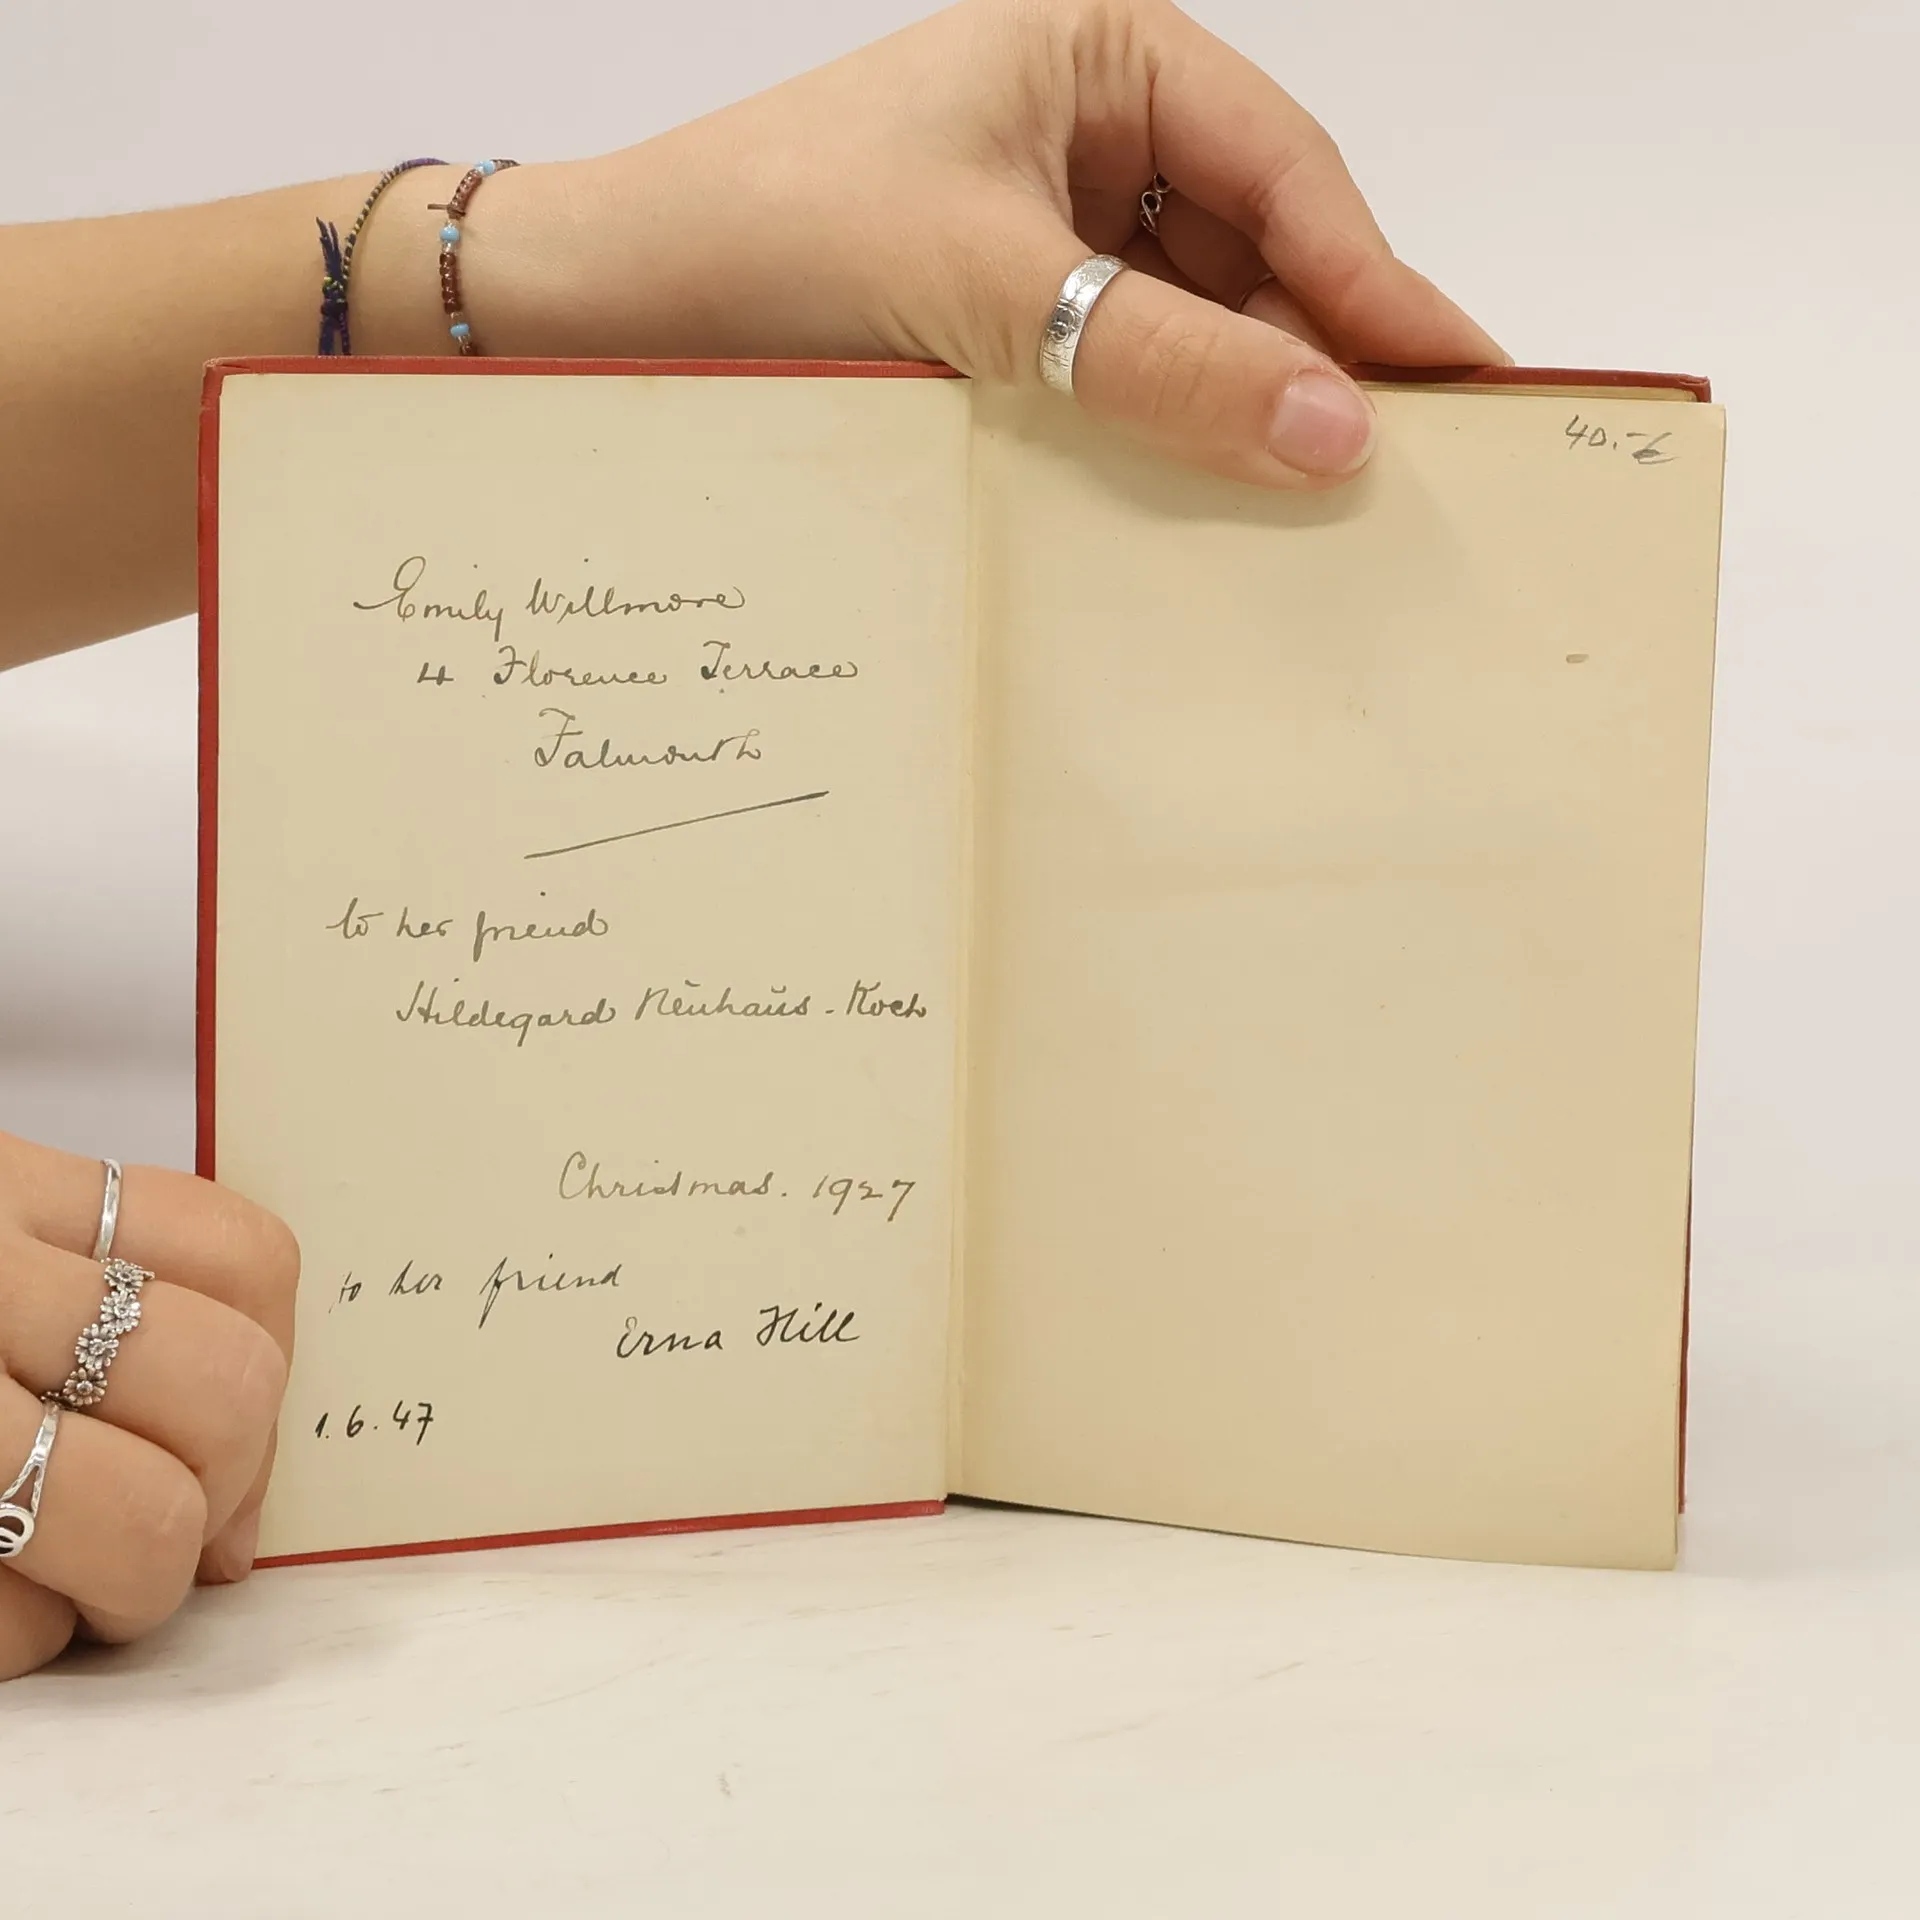 Emily Willmore
4 Florence Terrace
Falmouth
to her friend
Hildegard Neuhaus-Koch
Christmas. 1927
to her friend
Erna Hill
1.6.47
40.-€